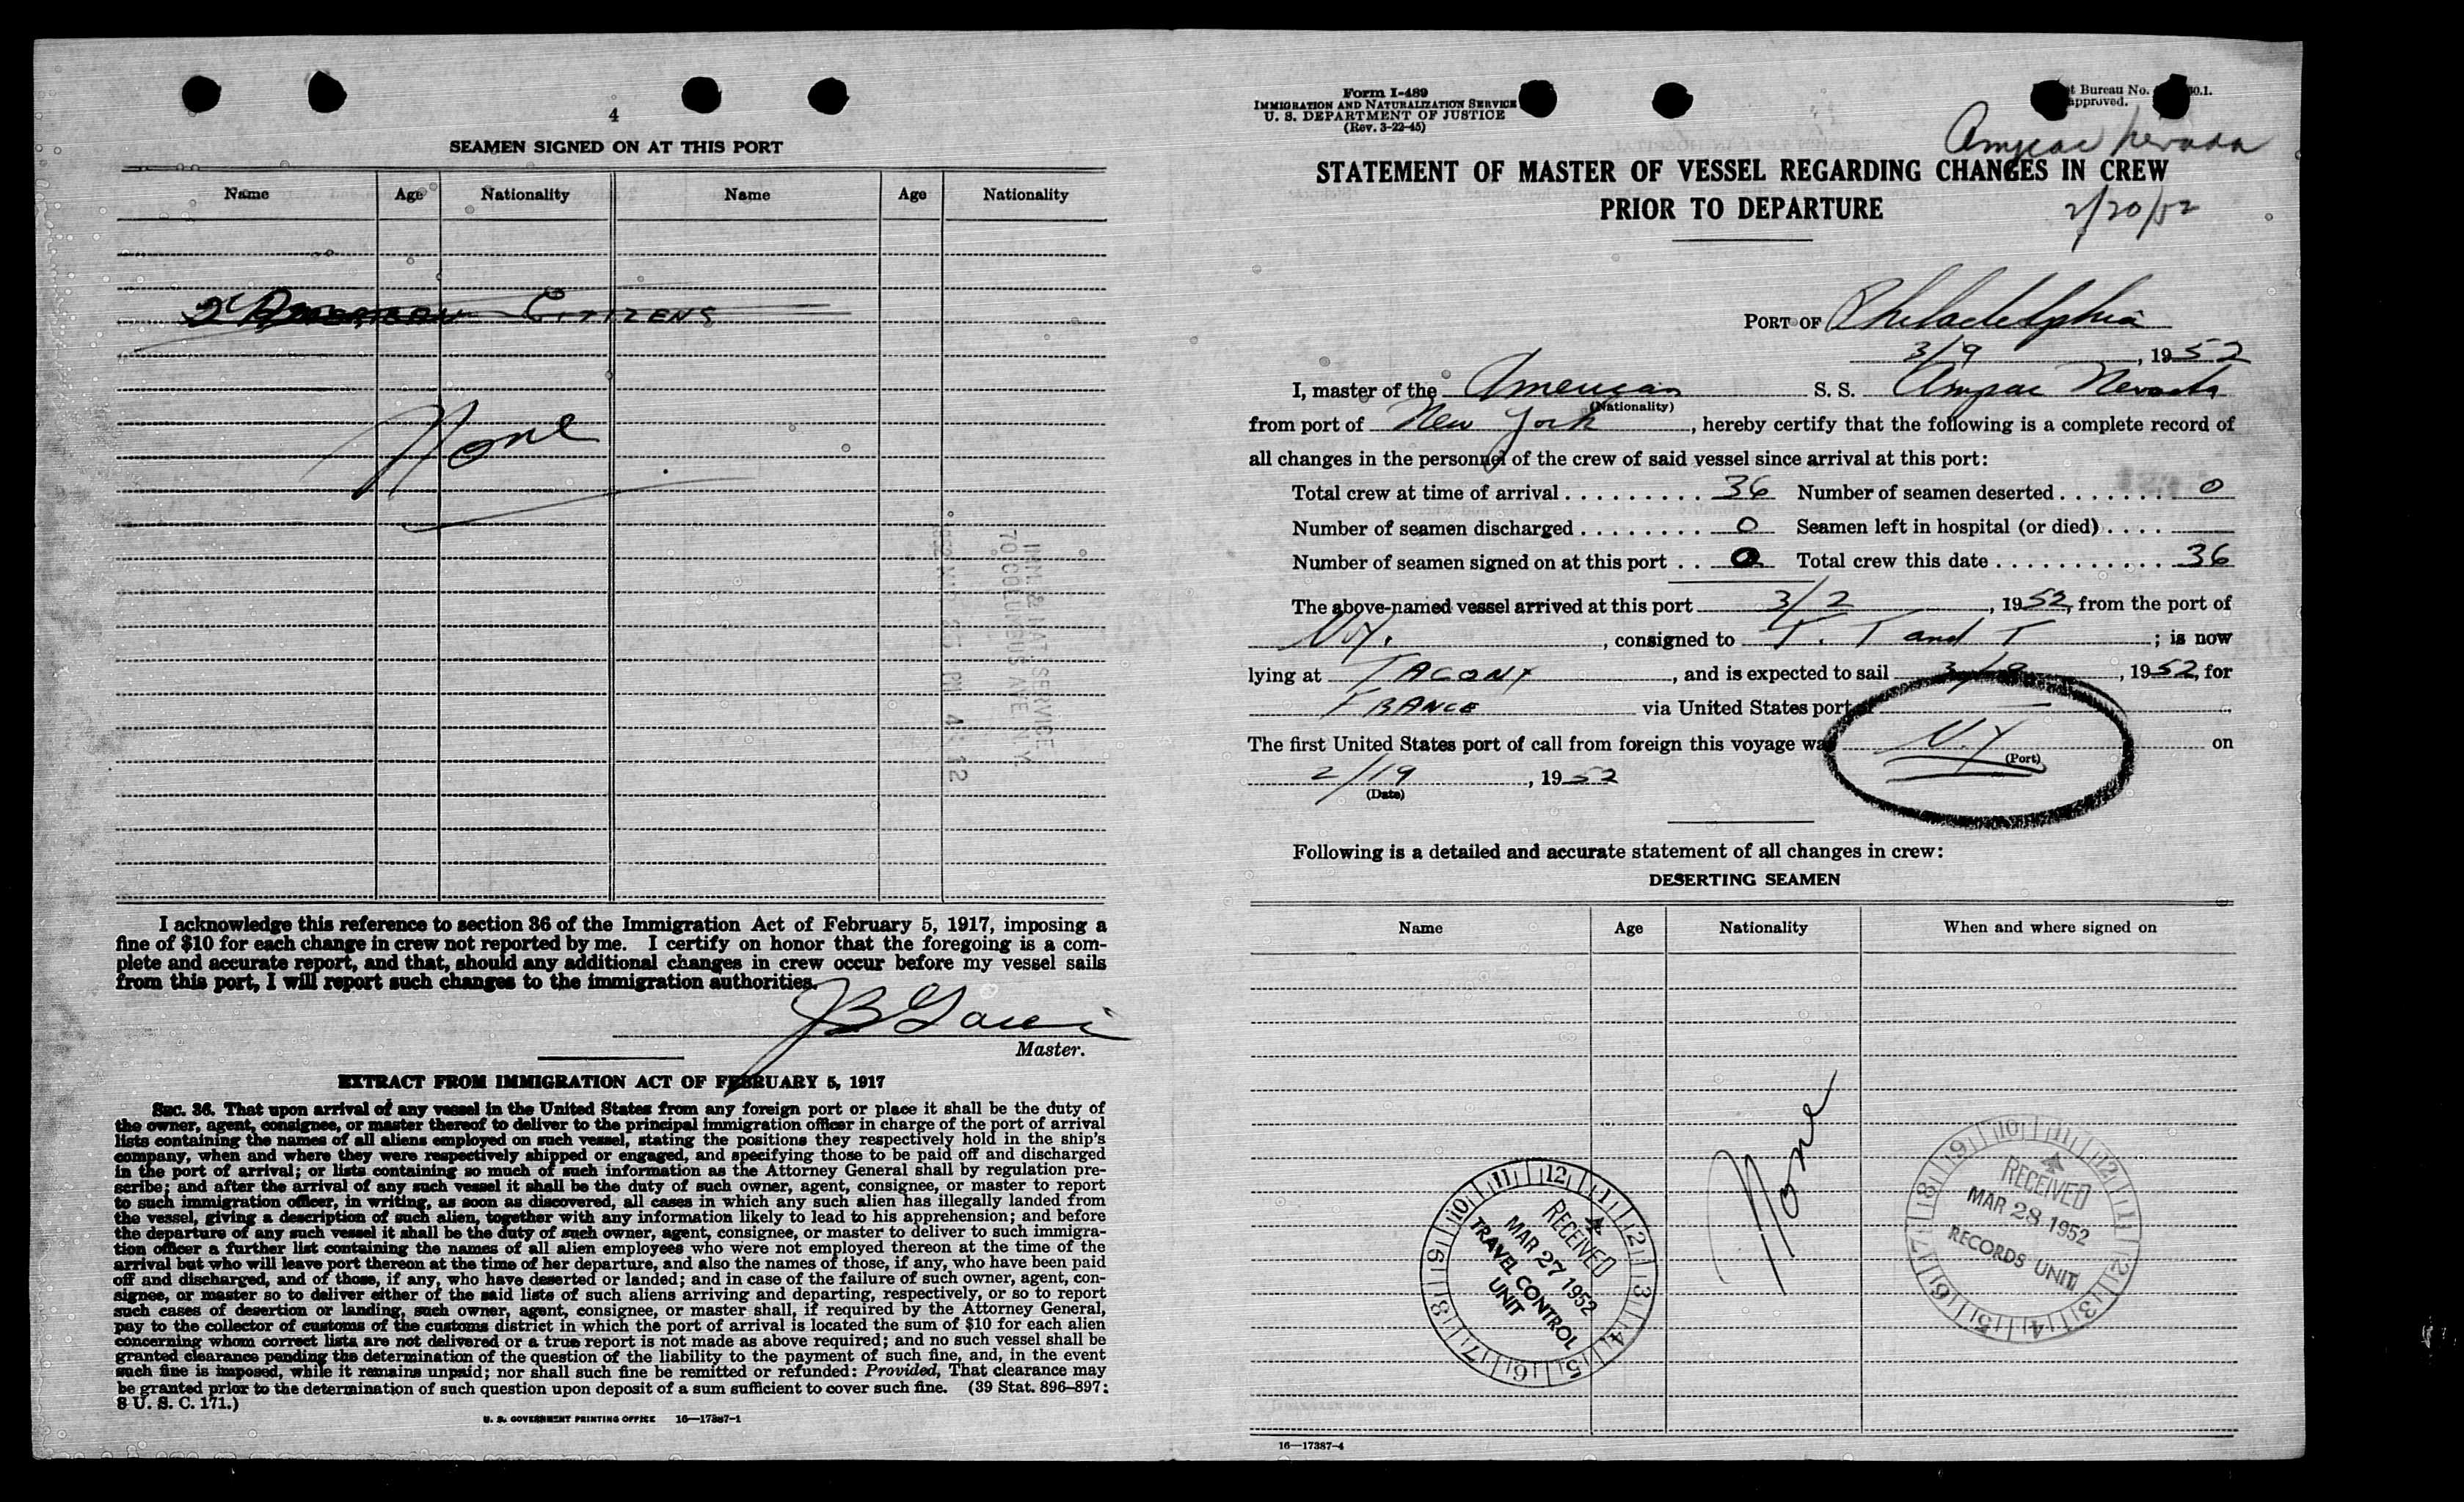 4
SEAMEN SIGNED ON AT THIS PORT
Name Age Nationality Name Age Nationality
2 American Citizens
None
IMM. & NAT. SERVICE
70 COLUMBUS AVE. N.Y.
PM 4:12
I acknowledge this reference to section 36 of the Immigration Act of February 5, 1917, imposing a
fine of $10 for each change in crew not reported by me. I certify on honor that the foregoing is a com-
plete and accurate report, and that, should any additional changes in crew occur before my vessel sails
from this port, I will report such changes to the immigration authorities.
Master.
EXTRACT FROM IMMIGRATION ACT OF FEBRUARY 5, 1917
Sec. 36. That upon arrival of any vessel in the United States from any foreign port or place it shall be the duty of
the owner, agent, consignee, or master thereof to deliver to the principal immigration officer in charge of the port of arrival
lists containing the names of all aliens employed on such vessel, stating the positions they respectively hold in the ship's
company, when and where they were respectively shipped or engaged, and specifying those to be paid off and discharged
in the port of arrival; or lists containing so much of such information as the Attorney General shall by regulation pre-
scribe; and after the arrival of any such vessel it shall be the duty of such owner, agent, consignee, or master to report
to such immigration officer, in writing, as soon as discovered, all cases in which any such alien has illegally landed from
the vessel, giving a description of such alien, together with any information likely to lead to his apprehension; and before
the departure of any such vessel it shall be the duty of such owner, agent, consignee, or master to deliver to such immigra-
tion officer a further list containing the names of all alien employees who were not employed thereon at the time of the
arrival but who will leave port thereon at the time of her departure, and also the names of those, if any, who have been paid
off and discharged, and of those, if any, who have deserted or landed; and in case of the failure of such owner, agent, con-
signee, or master so to deliver either of the said lists of such aliens arriving and departing, respectively, or so to report
such cases of desertion or landing, such owner, agent, consignee, or master shall, if required by the Attorney General,
pay to the collector of customs of the customs district in which the port of arrival is located the sum of $10 for each alien
concerning whom correct lists are not delivered or a true report is not made as above required; and no such vessel shall be
granted clearance pending the determination of the question of the liability to the payment of such fine, and, in the event
such fine is imposed, while it remains unpaid; nor shall such fine be remitted or refunded: Provided, That clearance may
be granted prior to the determination of such question upon deposit of a sum sufficient to cover such fine. (39 Stat. 896–897;
8 U. S. C. 171.)
U. S. GOVERNMENT PRINTING OFFICE 16—17387-1
Form I-489
IMMIGRATION AND NATURALIZATION SERVICE
U. S. DEPARTMENT OF JUSTICE
(Rev. 3-22-45)
Bureau No.
approved.
Ampac Nevada
2/20/52
STATEMENT OF MASTER OF VESSEL REGARDING CHANGES IN CREW
PRIOR TO DEPARTURE
PORT OF Philadelphia
3/9, 1952
I, master of the American S. S. Ampac Nevada
(Nationality)
from port of New York, hereby certify that the following is a complete record of
all changes in the personnel of the crew of said vessel since arrival at this port:
Total crew at time of arrival . . . . . . . . . 36 Number of seamen deserted . . . . . . . 0
Number of seamen discharged . . . . . . . . 0 Seamen left in hospital (or died) . . . .
Number of seamen signed on at this port . . 0 Total crew this date . . . . . . . . . . . . 36
The above-named vessel arrived at this port 3/2, 1952, from the port of
N.Y., consigned to T. T and T; is now
lying at TACONY, and is expected to sail 3/9, 1952, for
FRANCE via United States port
The first United States port of call from foreign this voyage was N.Y on
(Port)
2/19, 1952
(Date)
Following is a detailed and accurate statement of all changes in crew:
DESERTING SEAMEN
Name Age Nationality When and where signed on
None
RECEIVED
MAR 27 1952
TRAVEL CONTROL
UNIT
12 1 2 3 4 5 6 7 8 9 10 11
RECEIVED
MAR 28 1952
RECORDS UNIT
12 1 2 3 4 5 6 7 8 9 10 11
16—17387-4